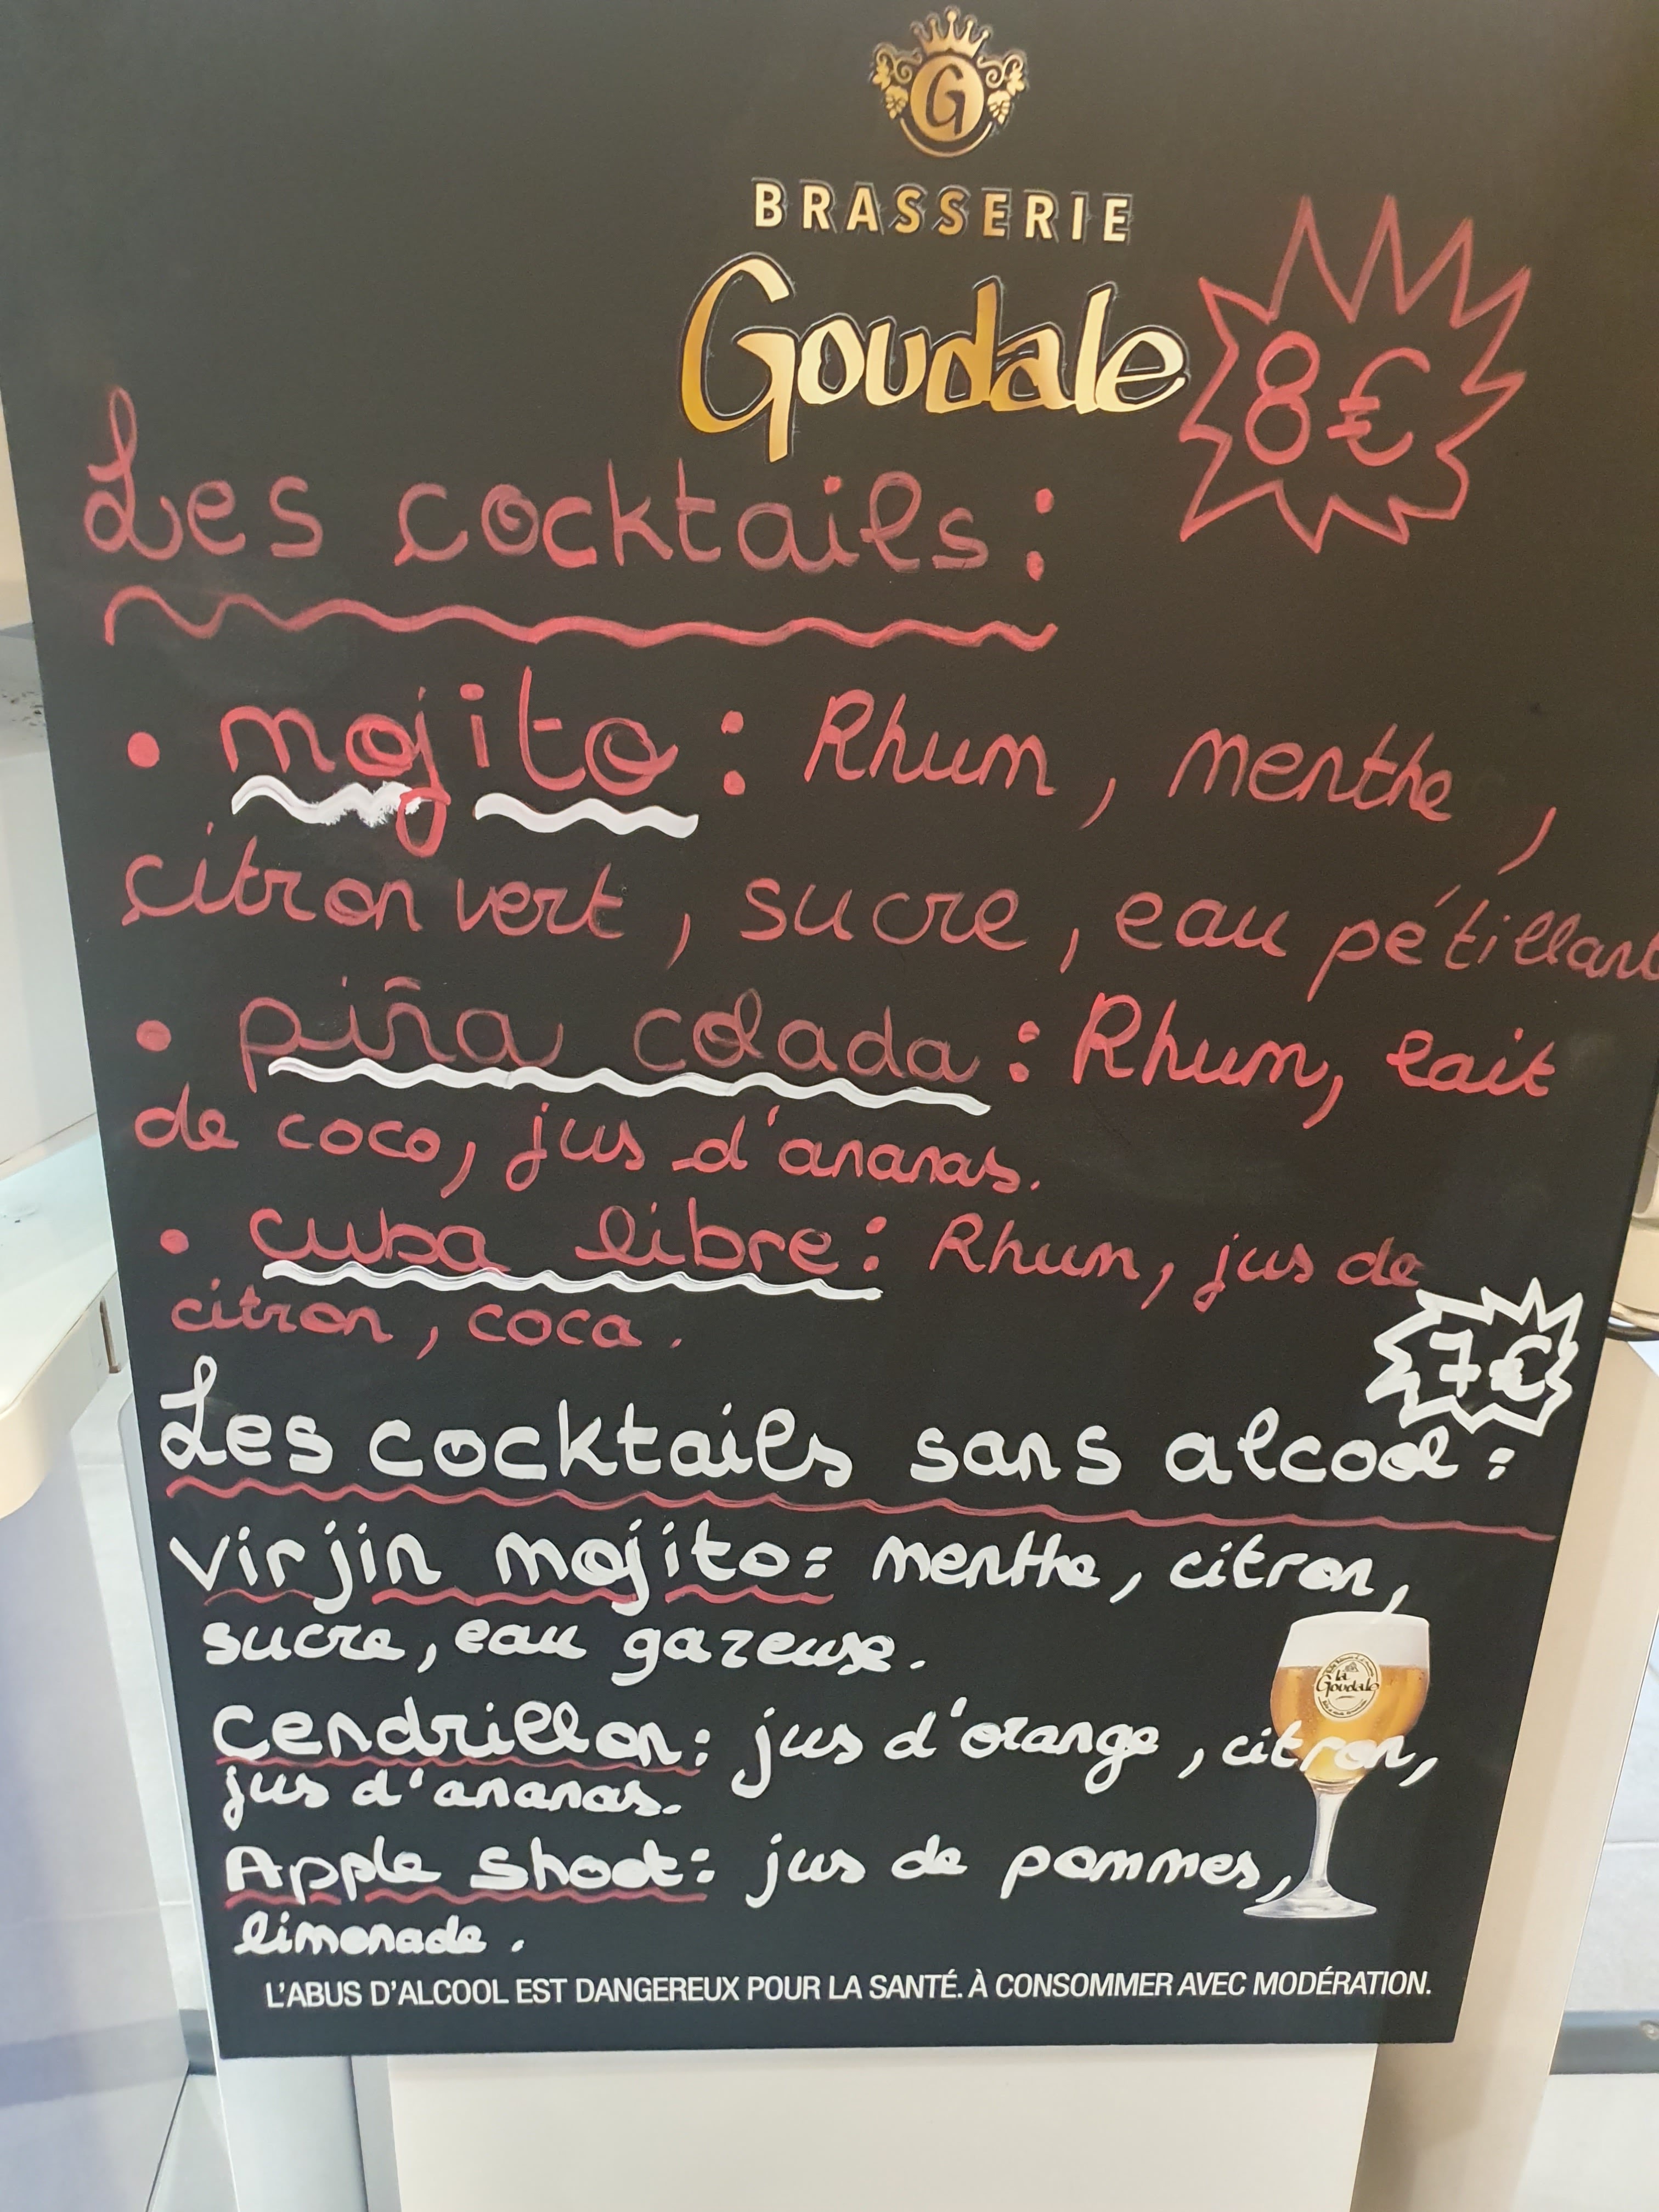 G
BRASSERIE
Goudale
8€
Les cocktails :
• mojito : Rhum, menthe,
citron vert, sucre, eau pétillant
• piña colada : Rhum, lait
de coco, jus d'ananas.
• cuba libre : Rhum, jus de
citron, coca.
7€
Les cocktails sans alcool :
Virjin mojito : menthe, citron,
sucre, eau gazeuse.
Cendrillon : jus d'orange, citron,
jus d'ananas.
Apple Shoot : jus de pommes,
limonade.
la
Goudale
L'ABUS D'ALCOOL EST DANGEREUX POUR LA SANTÉ. À CONSOMMER AVEC MODÉRATION.